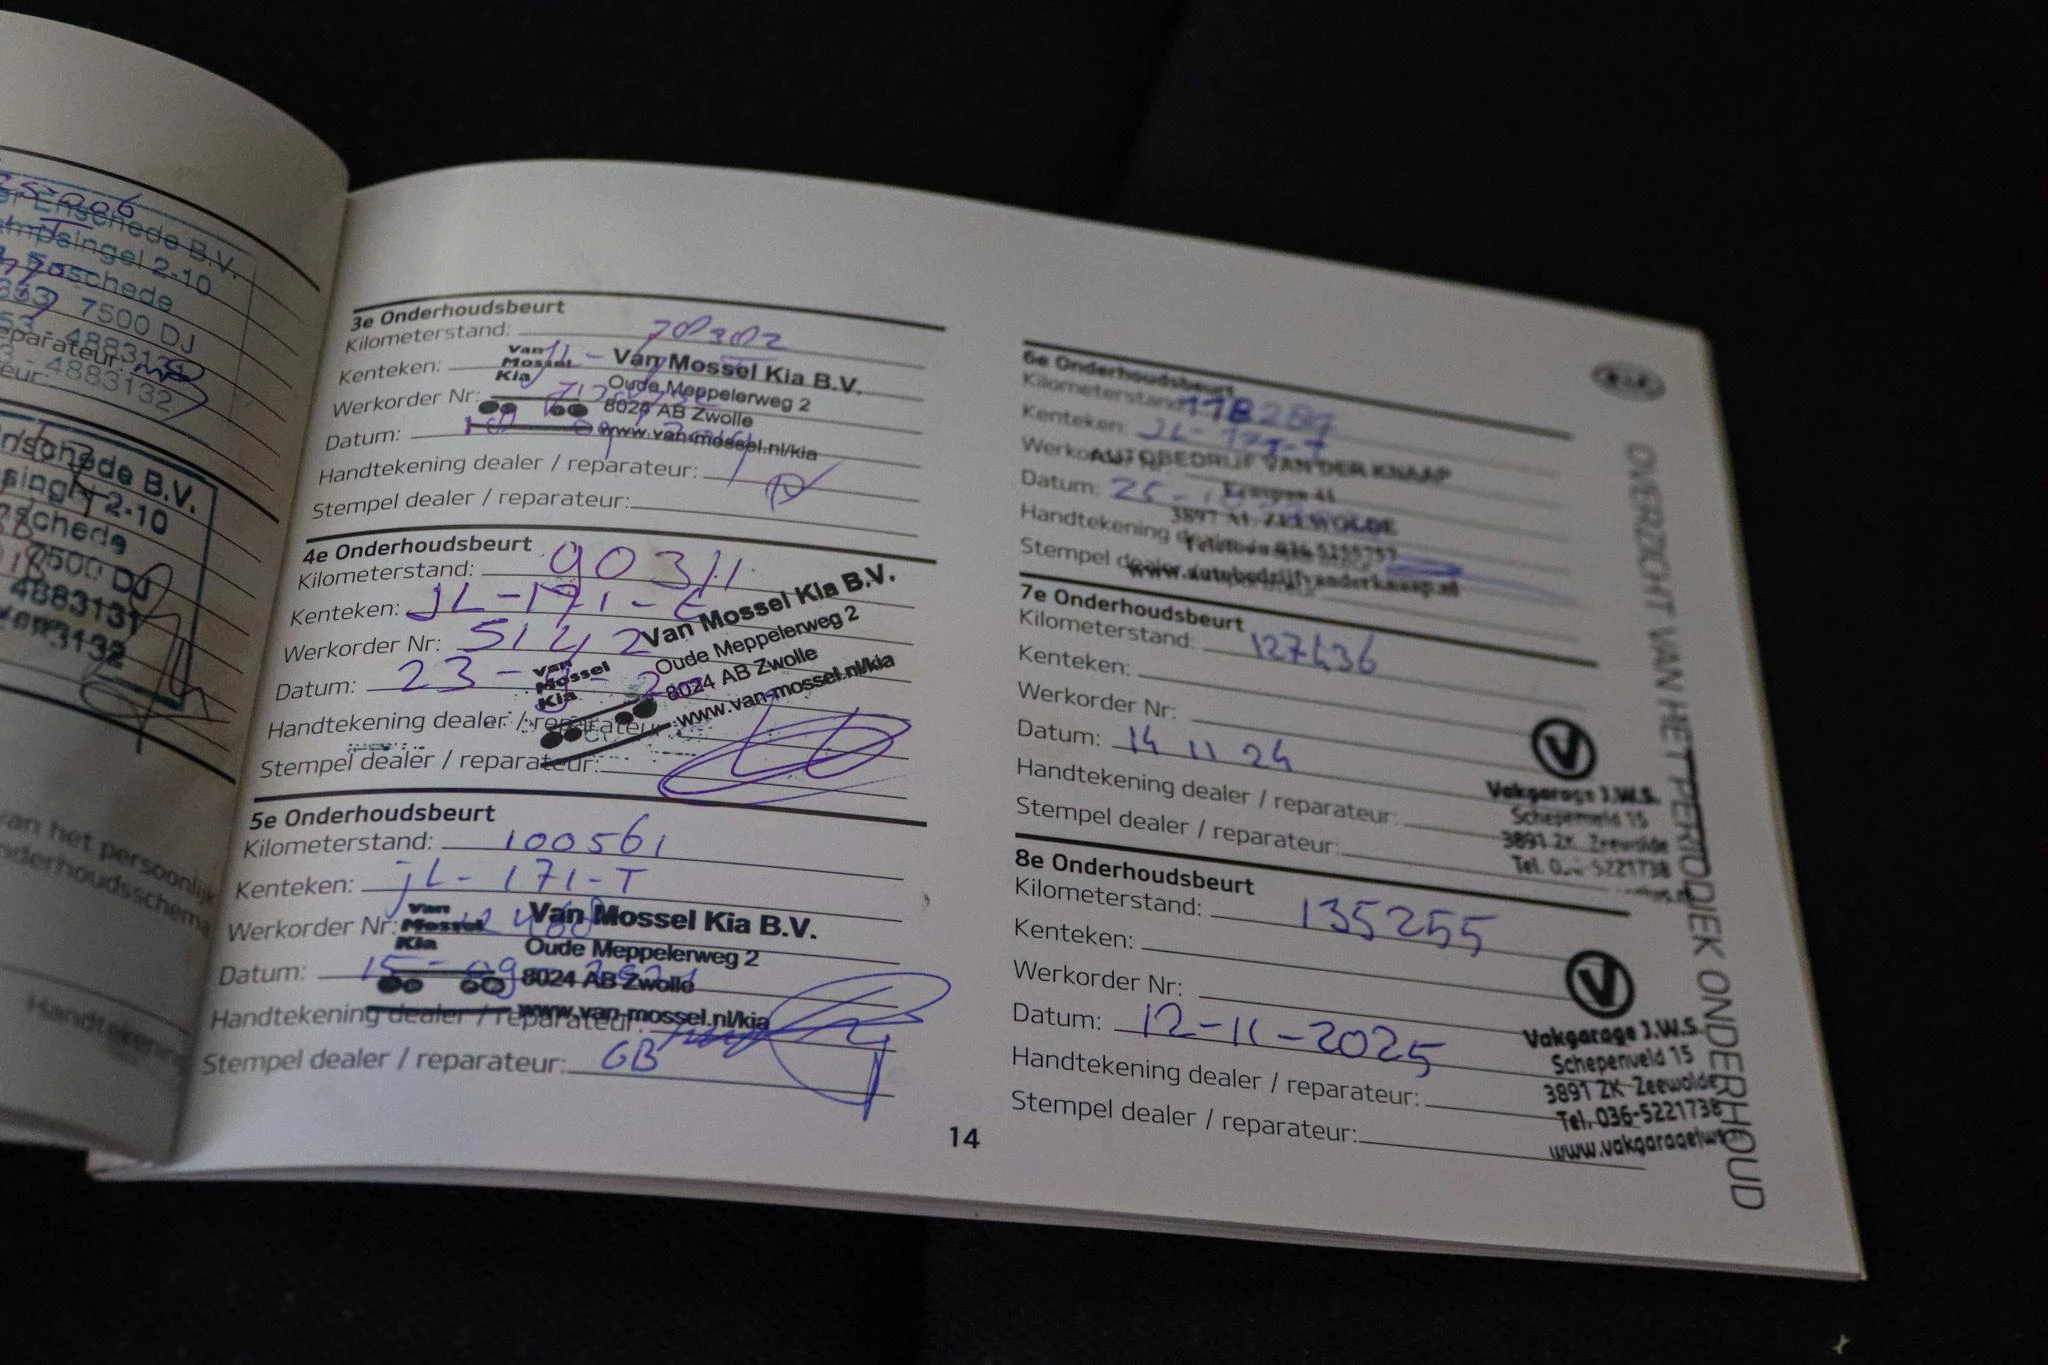 Enschede B.V.
2-10
Enschede
7500 DJ
4883132
B.V.
2-10
7500 DJ
4883131
3132
van het persoonlijk
onderhoudsschema
Handtekening
3e Onderhoudsbeurt
Kilometerstand:
Kenteken: JL-
Van Mossel Kia
Van Mossel Kia B.V.
Werkorder Nr:
Oude Meppelerweg 2
8024 AB Zwolle
Datum:
www.van-mossel.nl/kia
Handtekening dealer / reparateur:
Stempel dealer / reparateur:
4e Onderhoudsbeurt
Kilometerstand: 90311
Kenteken: JL-171-T
Werkorder Nr: 5142
Van Mossel Kia B.V.
Oude Meppelerweg 2
Datum: 23-
Van Mossel Kia
8024 AB Zwolle
www.van-mossel.nl/kia
Handtekening dealer / reparateur:
Stempel dealer / reparateur:
5e Onderhoudsbeurt
Kilometerstand: 100561
Kenteken: JL-171-T
Werkorder Nr:
Van Mossel Kia
Van Mossel Kia B.V.
Oude Meppelerweg 2
Datum: 15-09
8024 AB Zwolle
www.van-mossel.nl/kia
Handtekening dealer / reparateur:
Stempel dealer / reparateur: GB
14
KIA
6e Onderhoudsbeurt
Kilometerstand:
Kenteken: JL-171-T
Werkorder Nr:
AUTOBEDRIJF VAN DER KNAAP
Datum: 25-
ZEEWOLDE
Handtekening dealer
Stempel dealer
www.autobedrijfvanderknaap.nl
7e Onderhoudsbeurt
Kilometerstand: 127436
Kenteken:
Werkorder Nr:
Datum: 14 11 24
Handtekening dealer / reparateur:
Stempel dealer / reparateur:
Vakgarage J.W.S.
Schepenveld 15
3891 ZK Zeewolde
Tel. 5221738
8e Onderhoudsbeurt
Kilometerstand: 135255
Kenteken:
Werkorder Nr:
Datum: 12-11-2025
Handtekening dealer / reparateur:
Stempel dealer / reparateur:
Vakgarage J.W.S.
Schepenveld 15
3891 ZK Zeewolde
Tel. 036-5221738
www.vakgaragejws
OVERZICHT VAN HET PERIODIEK ONDERHOUD